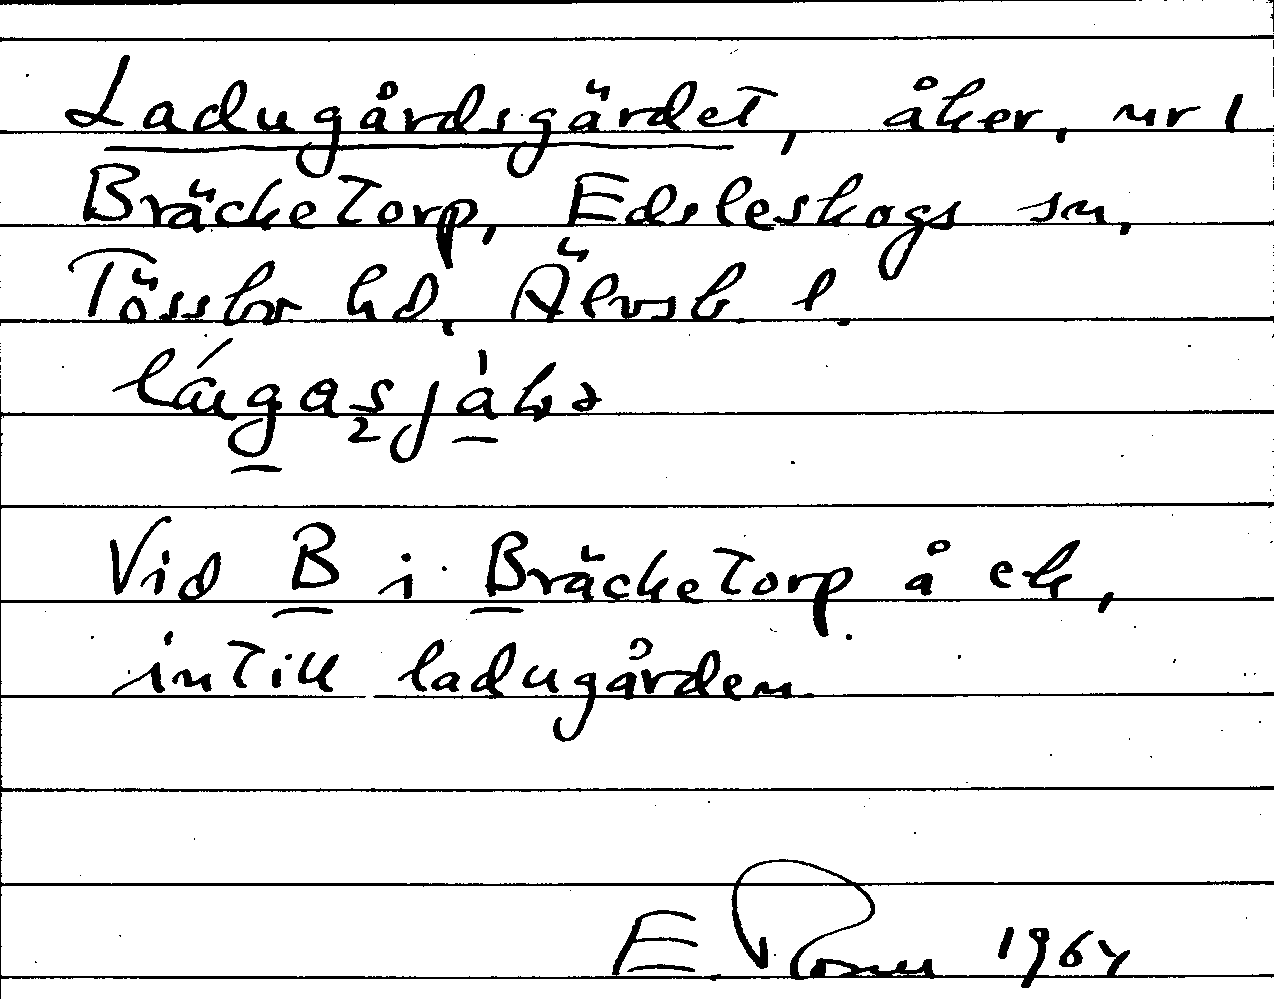 Ladugårdsgärdet, åker, nr 1
Bräcketorp, Edsleskogs sn,
Tössbo hd. Älvsb. l.
Vid B i Bräcketorp å ek,
intill ladugården.
E. 1964